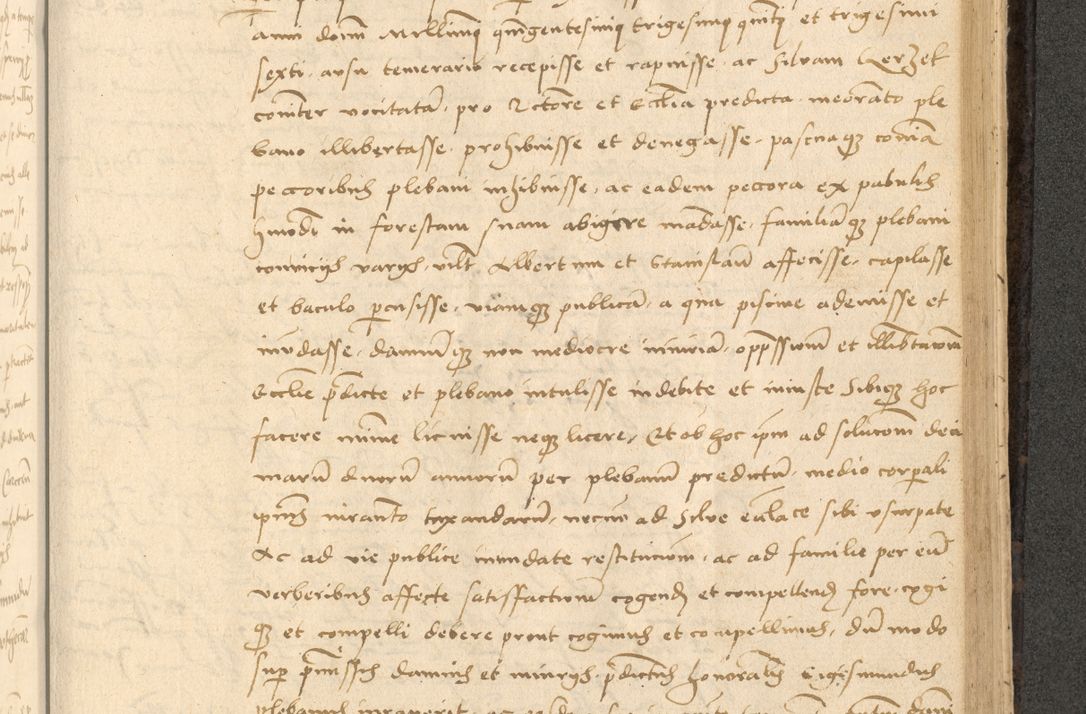 anni domini Millesimi quingentesimi trigesimi quinti et trigesimi
sexti, ausu temerario recepisse et rapuisse, ac Silvam Kerzet
comiter vocitatam, pro Rectore et Ecclesia predicta, meorato ple
bano illibertasse, prohibuisse et denegasse, pascuaque comunia
peccoribus plebani inhibuisse, ac eadem peccora ex pabulis
hmodi in forestam suam abigere mandasse, familiamque plebani
conviciis variis, videlicet Albertum et Stanislaum affecisse, capulasse
et baculo percussisse, viamque publicam, a qua piscine ademisse et
inundasse, damnumque non mediocre iniuriam, oppressionem et illibertacionem
Ecclesie predicte et plebano intulisse indebite et iniuste Sibique hoc
facere minime licuisse neque licere, Et ob hoc ipsum ad solucionem deci
marum duorum annorum per plebanum predictum, medio corporali
ipsius iuramento taxandarum, necnon ad Silve eidem sibi usurpate
Ac ad vie publice inundate restitucionem, ac ad familie per eum
verberibus affecte satisfactionem cogendum et compellendum fore, cogi
que et compelli debere prout cogimus et compellimus, dum modo
super premissis damnis et iniuriis, predictus honorabilis Sigismundus
plebanus iuraverit